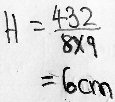 H = 432/8x9
= 6cm